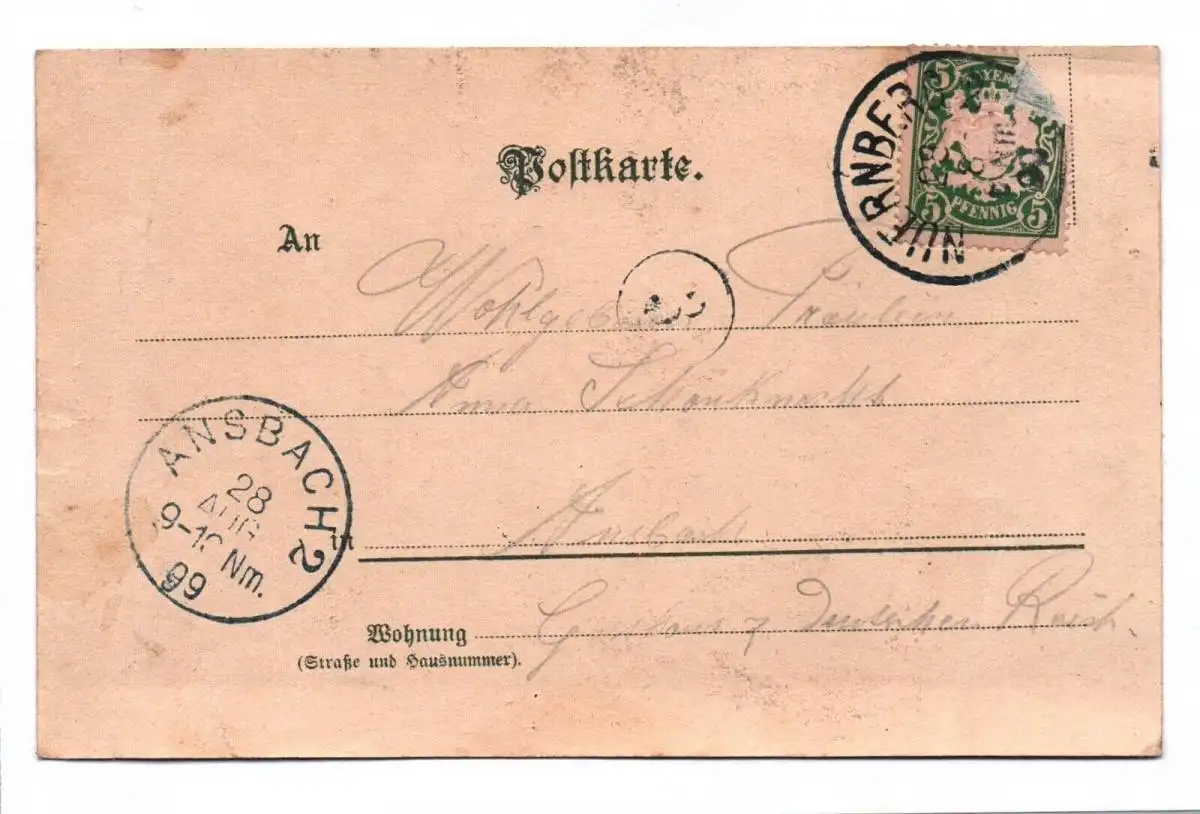 Postkarte.
5 BAYERN
5 PFENNIG 5
NUERNBERG
28
An Wohlgeboren Fräulein
Anna Schönknecht
ANSBACH 2
28
AUG
9-10 Nm.
99
in Ansbach
Wohnung Gasthaus z Deutschen Reich.
(Straße und Hausnummer).